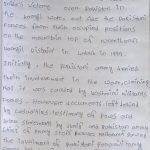 India's victory over Pakistan in
the Kargil war, out all the Pakistani
forces from their occupied positions
on the mountain top of northern
Kargil district in Ladakh in 1999.
Initially, the Pakistani army denied
their involvement in the war, claiming
that it was caused by Kashmiri militants
Forces. However documents left behind
by casualties, testimony of POWs and
later statement by Pakistan army
chief of army staff Pervez showed
the involvement of Pakistani Paramilitary